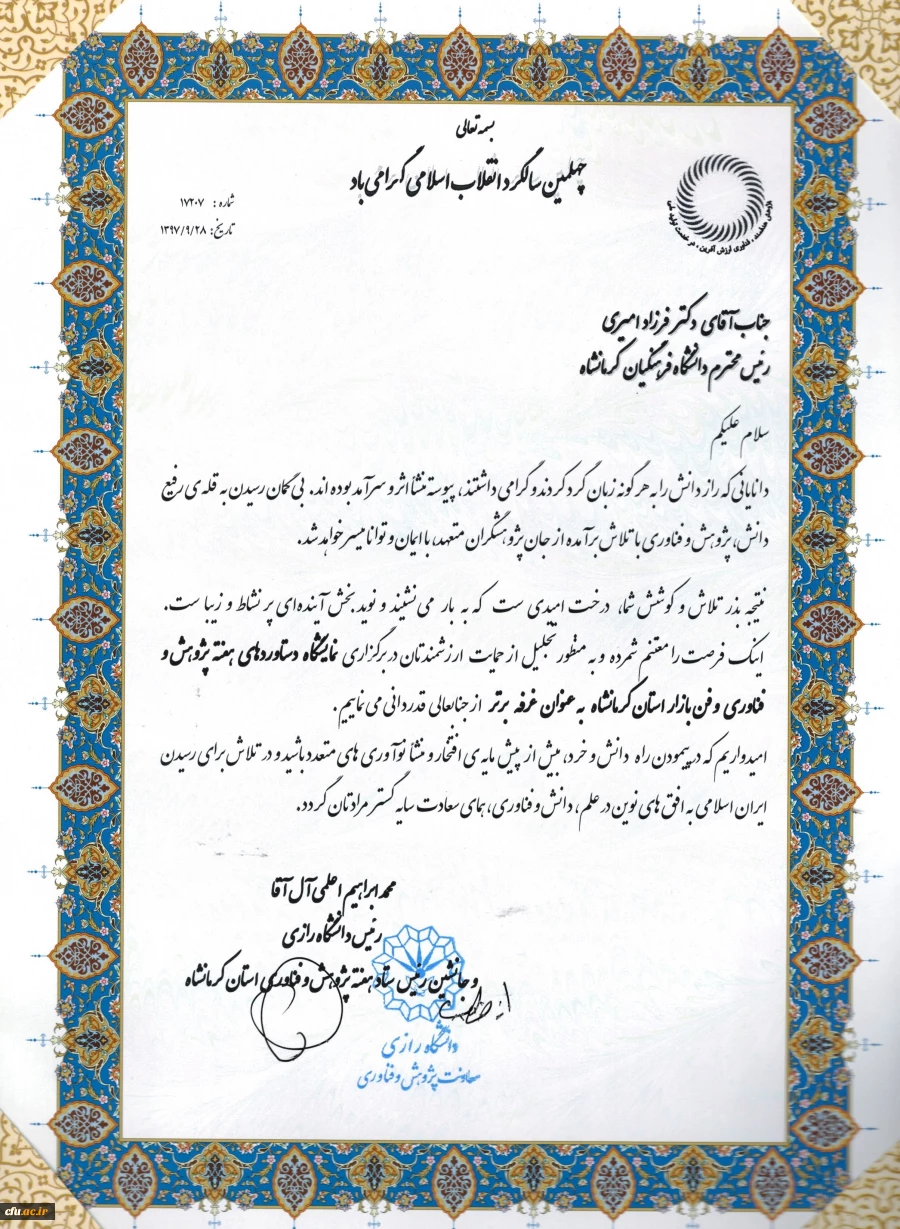 بسمه تعالی
چهلمین سالگرد انقلاب اسلامی گرامی باد
شماره: ۱۷۲۰۷
تاریخ: ۱۳۹۷/۹/۲۸
پژوهش هدفمند، فناوری ارزش آفرین، در خدمت تولید ملی
جناب آقای دکتر فرزاد امیری
رئیس محترم دانشگاه فرهنگیان کرمانشاه
سلام علیکم
دانایانی که راز دانش را به هر گونه زبان گرد کردند و گرامی داشتند، پیوسته منشأ اثر و سرآمد بوده اند. بی گمان رسیدن به قله ی رفیع
دانش، پژوهش و فناوری با تلاش برآمده از جان پژوهشگران متعهد، با ایمان و توانا میسر خواهد شد.
نتیجه بذر تلاش و کوشش شما، درخت امیدی ست که به بار می نشیند و نوید بخش آینده ای پر نشاط و زیبا ست.
اینک فرصت را مغتنم شمرده و به منظور تجلیل از حمایت ارزشمندتان در برگزاری نمایشگاه دستاوردهای هفته پژوهش و
فناوری و فن بازار استان کرمانشاه به عنوان غرفه برتر از جنابعالی قدردانی می نماییم.
امیدواریم که در پیمودن راه دانش و خرد، بیش از پیش مایه ی افتخار و منشأ نوآوری های متعدد باشید و در تلاش برای رسیدن
ایران اسلامی به افق های نوین در علم، دانش و فناوری، همای سعادت سایه گستر مرادتان گردد.
محمد ابراهیم اعلمی آل آقا
رئیس دانشگاه رازی
و جانشین رئیس ستاد هفته پژوهش و فناوری استان کرمانشاه
دانشگاه رازی
معاونت پژوهش و فناوری
cfu.ac.ir